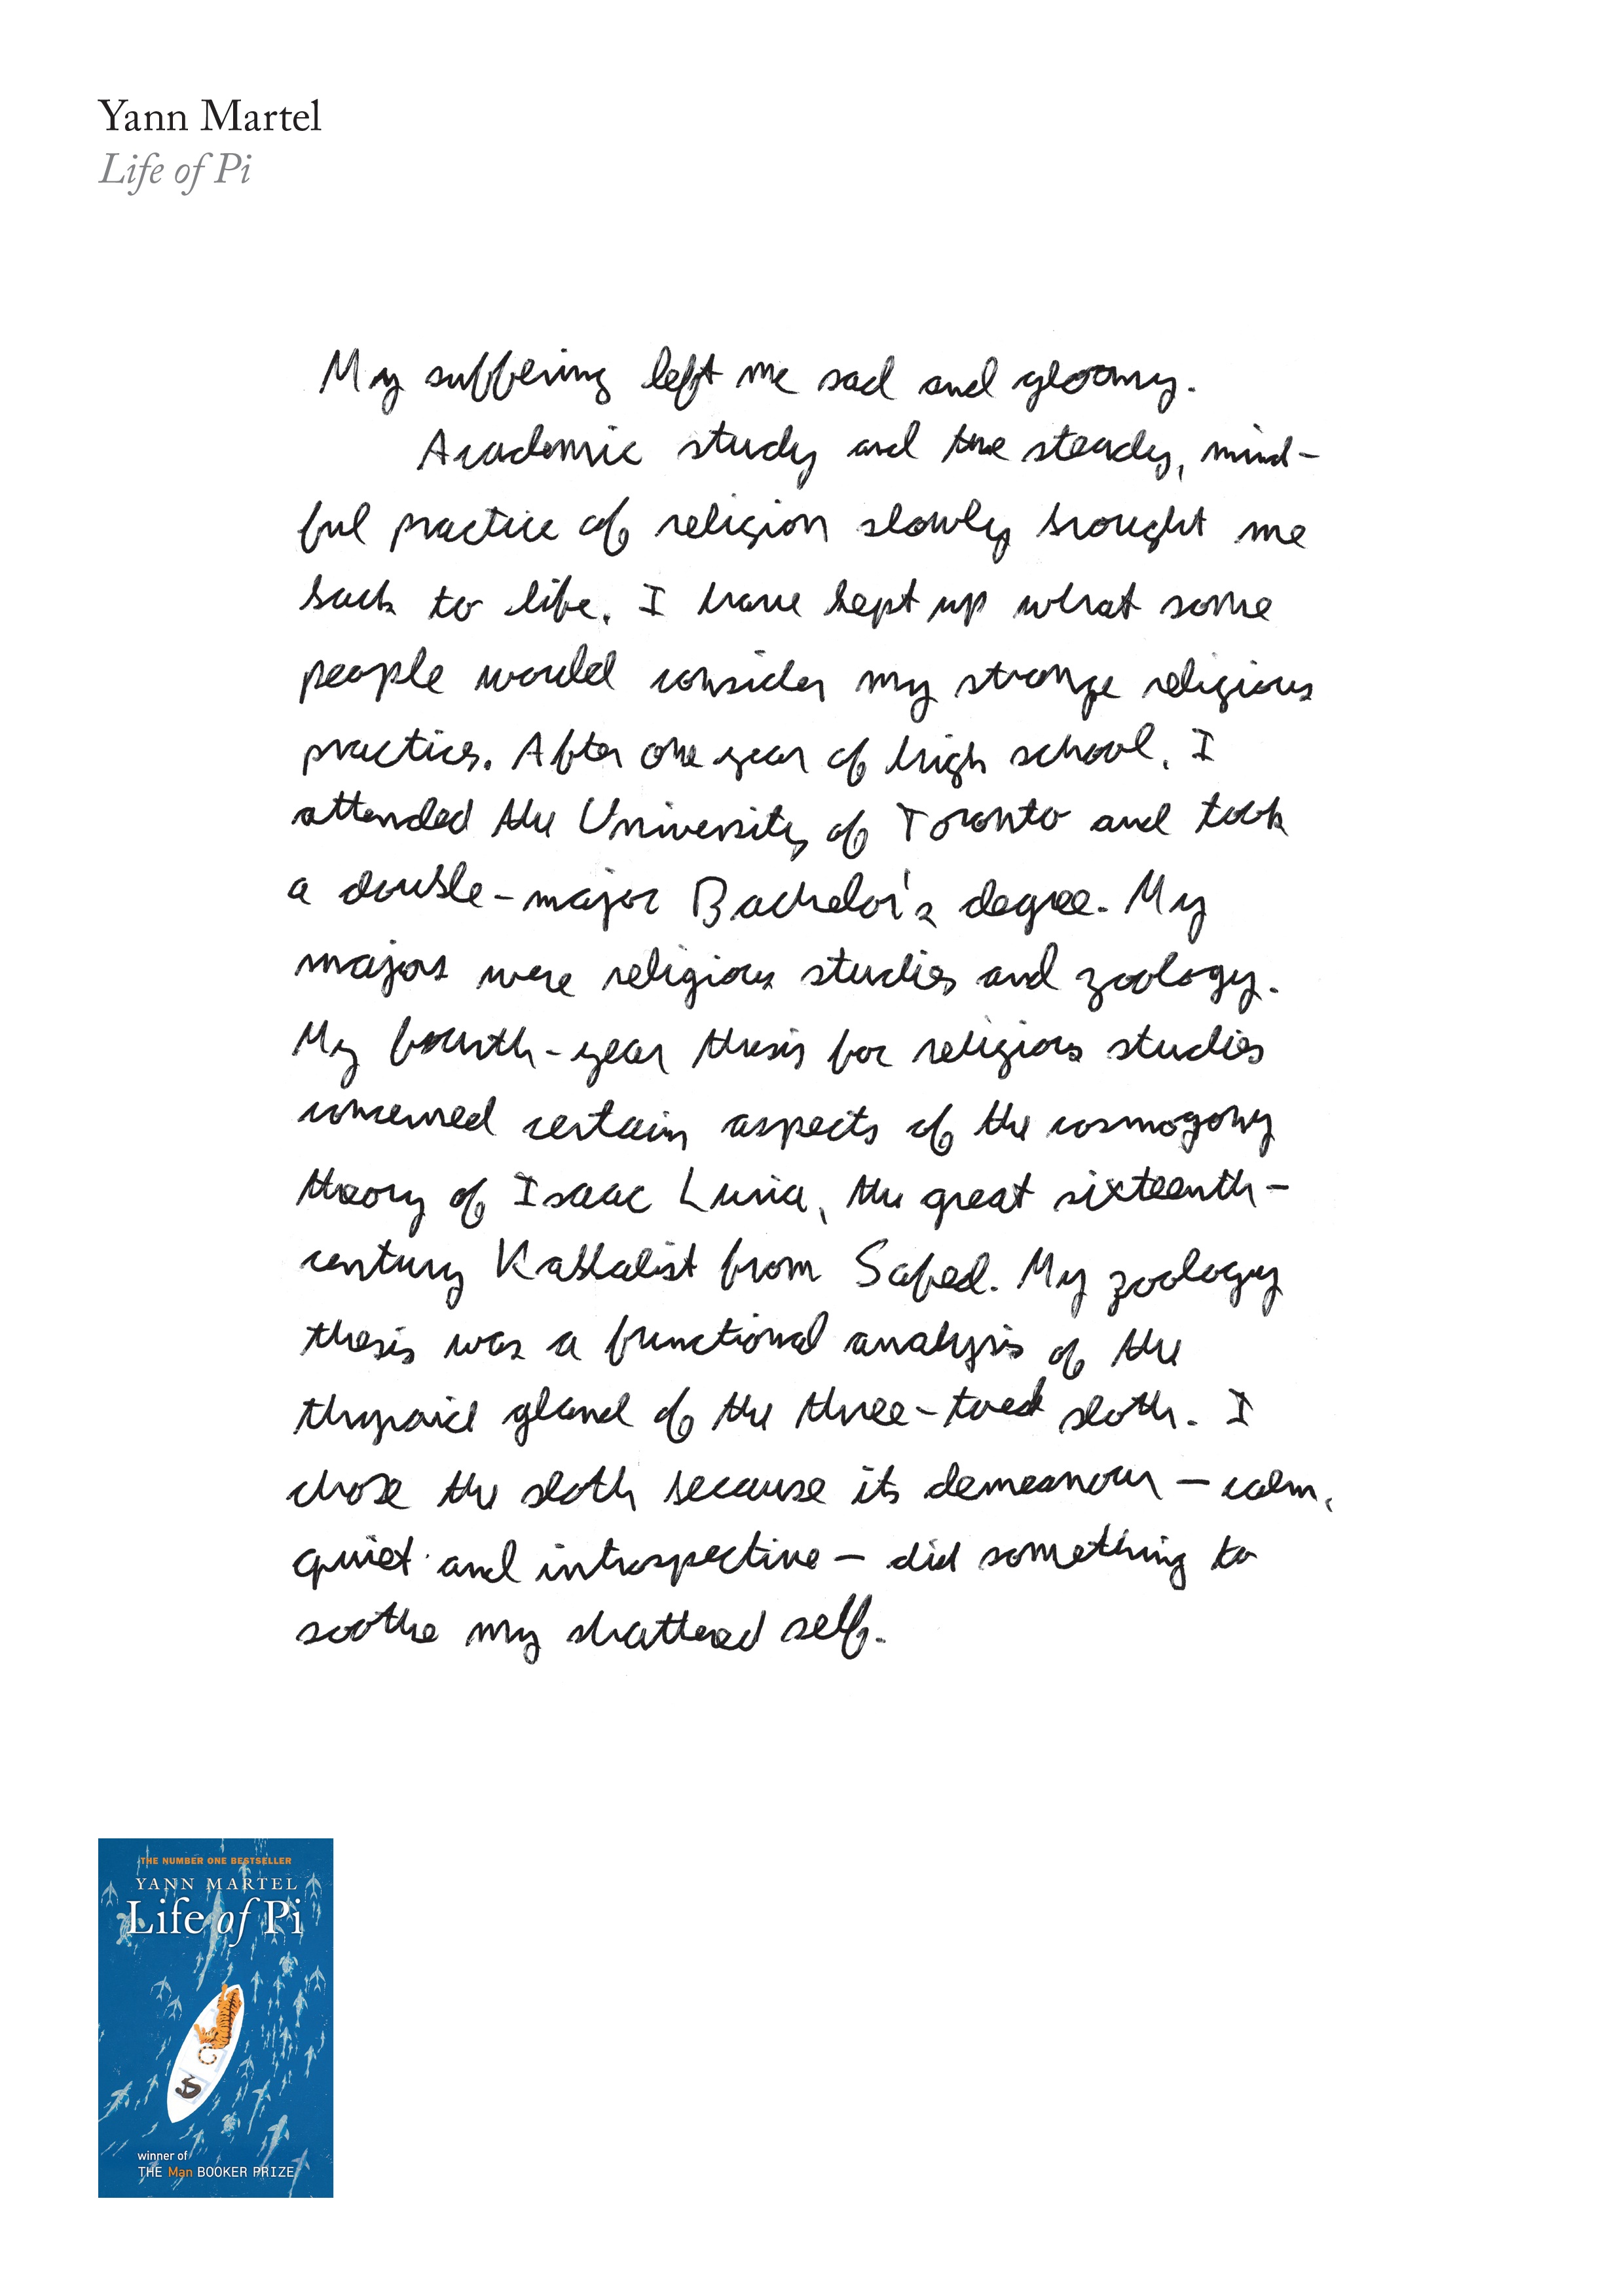 Yann Martel
Life of Pi
My suffering left me sad and gloomy.
Academic study and the steady, mind-
ful practice of religion slowly brought me
back to life. I have kept up what some
people would consider my strange religious
practices. After one year of high school, I
attended the University of Toronto and took
a double-major Bachelor's degree. My
majors were religious studies and zoology.
My fourth-year thesis for religious studies
concerned certain aspects of the cosmogony
theory of Isaac Luria, the great sixteenth-
century Kabbalist from Safed. My zoology
thesis was a functional analysis of the
thyroid gland of the three-toed sloth. I
chose the sloth because its demeanour – calm,
quiet and introspective – did something to
soothe my shattered self.
THE NUMBER ONE BESTSELLER
YANN MARTEL
Life of Pi
winner of
THE Man BOOKER PRIZE